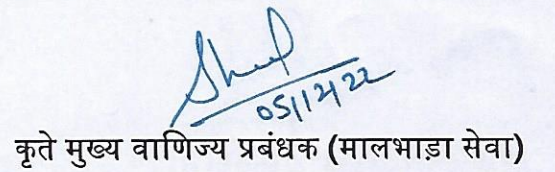 05/12/22
कृते मुख्य वाणिज्य प्रबंधक (मालभाड़ा सेवा)